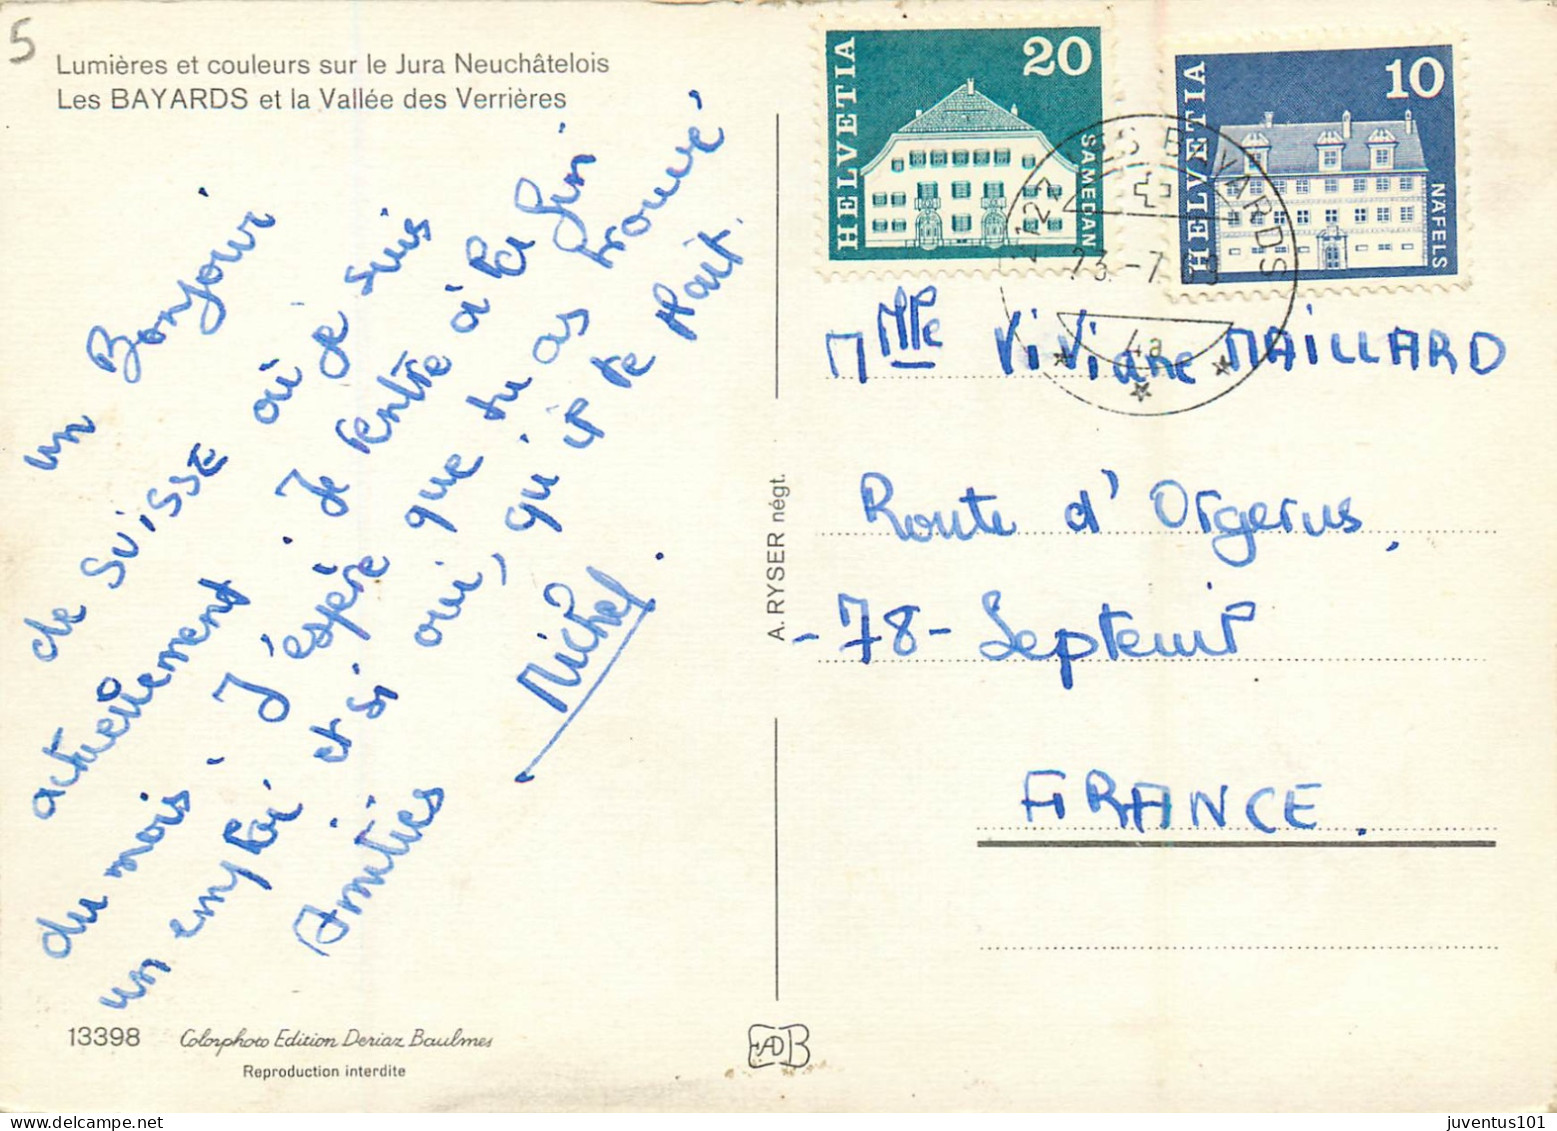 5
Lumières et couleurs sur le Jura Neuchâtelois
Les BAYARDS et la Vallée des Verrières
un Bonjour
de SuiSSE où je suis
actuellement. Je rentre à la fin
du mois. J'espère que tu as trouvé
un emploi et si oui, qu'il te plait.
Amitiés
Michel.
13398
Colorphoto Edition Deriaz Baulmes
Reproduction interdite
A. RYSER négt.
EADB
HELVETIA
20
SAMEDAN
HELVETIA
10
NÄFELS
LES BAYARDS
-7
4a
M Mlle ViViane MAiLLARD
Route d'Orgerus.
-78- Septeuil
FRANCE.
juventus101